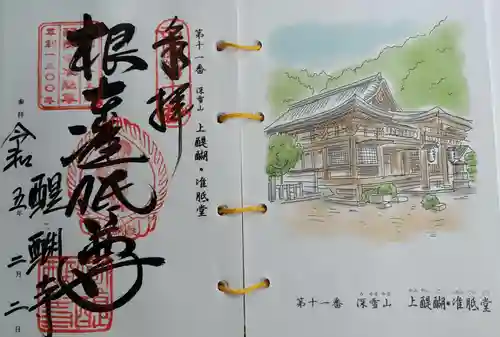 奉拝
根本准胝尊
奉拝
令和五年二月二日
醍醐寺
草創一三〇〇年
第十一番 深雪山 上醍醐・准胝堂
第十一番 深雪山 上醍醐・准胝堂